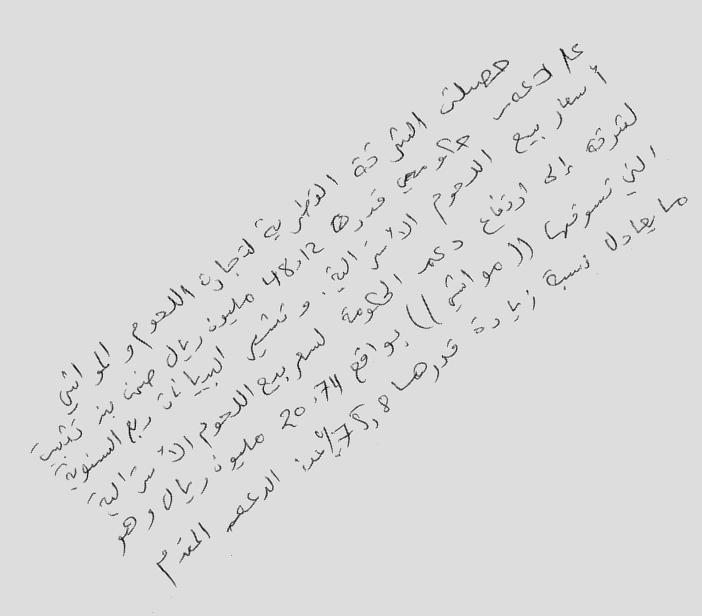 حصلت الشركة القطرية لتجارة اللحوم والمواشي
على دعم حكومي قدره 48.12 مليون ريال ضمن بند تثبيت
أسعار بيع اللحوم الأسترالية. وتشير البيانات ربع السنوية
للشركة إلى ارتفاع دعم الحكومة لسعر بيع اللحوم الأسترالية
التي تسوقها ((مواشي)) بواقع 20.74 مليون ريال وهو
ما يعادل نسبة زيادة قدرها 75.8% عن الدعم المقدم